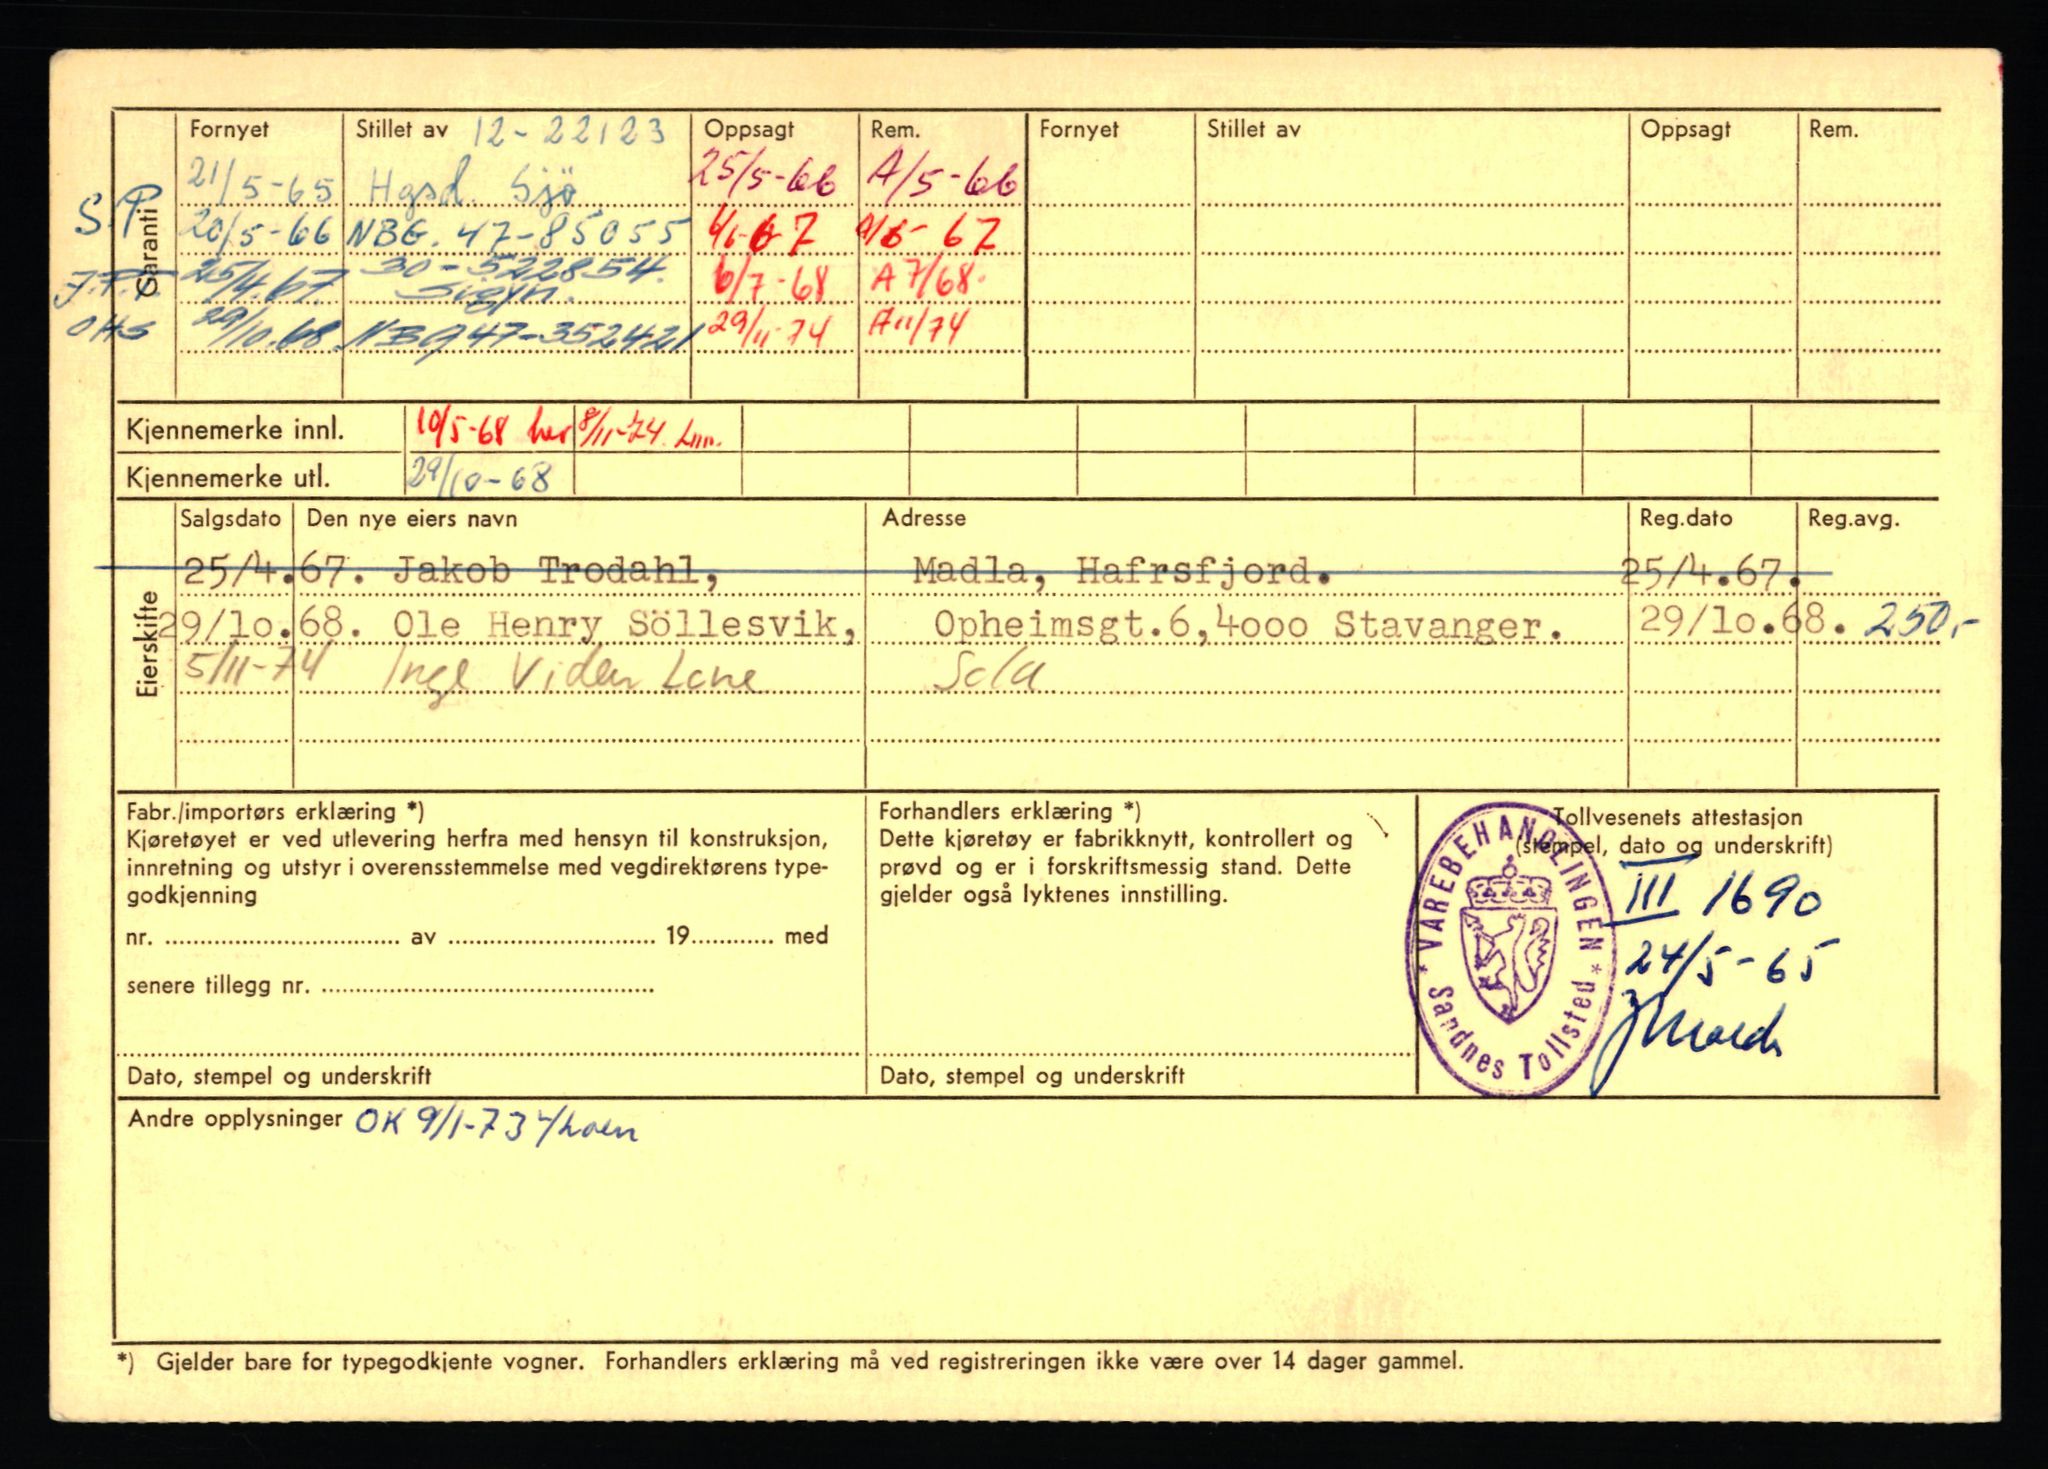 Garanti
Fornyet Stillet av 12-22123 Oppsagt Rem. Fornyet Stillet av Oppsagt Rem.
21/5-65 Hgsd. Sjö 25/5-66 A/5-66
S.P. 20/5-66 NBG. 47-85055 67
25/4.67. 30-522854. Sigyn. 6/7-68 A 7/68.
OHS 29/10.68. NBG 47-352421 29/11-74 A11/74
Kjennemerke innl. 10/5-68 her 8/11-74
Kjennemerke utl. 29/10-68
Eierskifte
Salgsdato Den nye eiers navn Adresse Reg.dato Reg.avg.
25/4.67. Jakob Trodahl, Madla, Hafrsfjord. 25/4.67.
29/10.68. Ole Henry Söllesvik, Opheimsgt.6,4000 Stavanger. 29/10.68. 250,-
5/11-74 Inge Viden Lone Sola
Fabr./importørs erklæring *)
Kjøretøyet er ved utlevering herfra med hensyn til konstruksjon,
innretning og utstyr i overensstemmelse med vegdirektørens type-
godkjenning
nr. ........ av ........ 19........ med
senere tillegg nr. ........
Dato, stempel og underskrift
Forhandlers erklæring *)
Dette kjøretøy er fabrikknytt, kontrollert og
prøvd og er i forskriftsmessig stand. Dette
gjelder også lyktenes innstilling.
Dato, stempel og underskrift
Tollvesenets attestasjon
(stempel, dato og underskrift)
* VAREBEHANDLINGEN *
Sandnes Tollsted
III 1690
24/5-65
Andre opplysninger OK 9/1-73
*) Gjelder bare for typegodkjente vogner. Forhandlers erklæring må ved registreringen ikke være over 14 dager gammel.